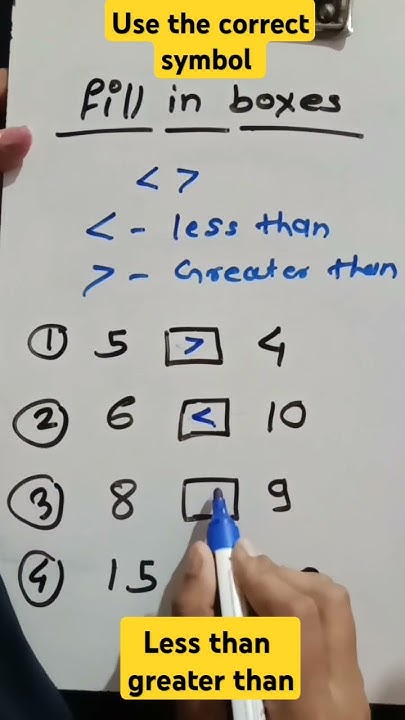 Use the correct
symbol
Fill in boxes
< >
< - less than
> - Greater than
① 5 > 4
② 6 < 10
③ 8 9
④ 15
Less than
greater than